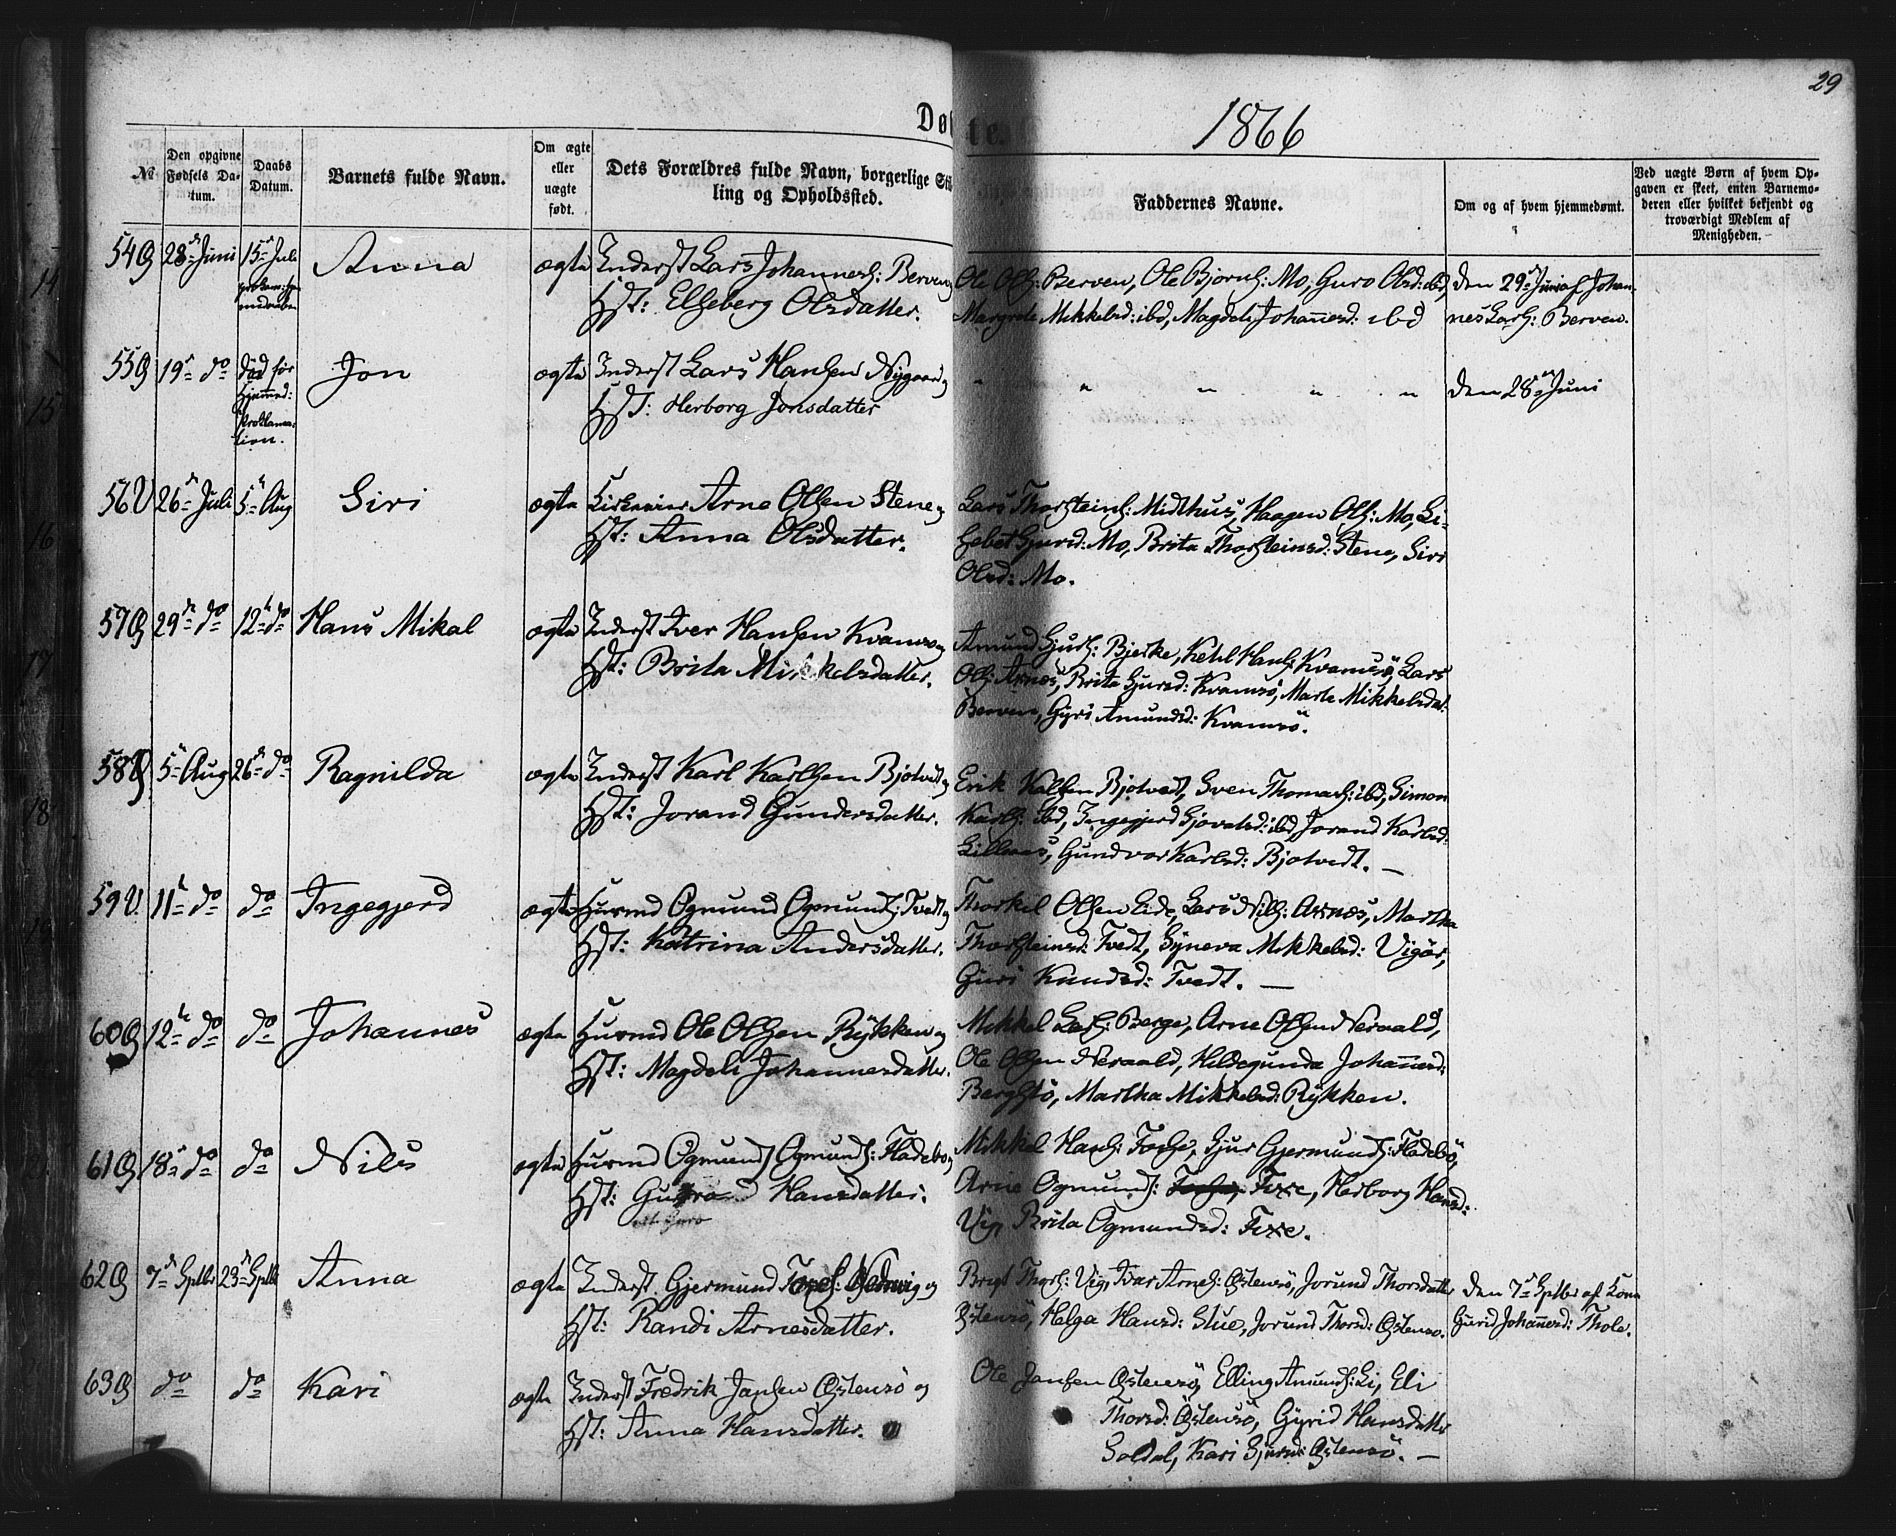 29
Døbte. 1866
№
Den opgivne Fødsels Datum.
Daabs Datum.
Barnets fulde Navn.
Om ægte eller uægte født.
Dets Forældres fulde Navn, borgerlige Stilling og Opholdssted.
Faddernes Navne.
Om og af hvem hjemmedømt.
Ved uægte Børn af hvem Opgaven er skeet, enten Barnemoderen eller hvilket bekjendt og troværdigt Medlem af Menigheden.
54 28de Juni 15de Juli Anna ægte Inderst Lars Johannes: Berven
Hst: Elseberg Olsdatter.
Ole Ols: Berven, Ole Bjørns: Mo, Guro Olsd: ibd,
Margrete Mikkelsd: ibd, Magdeli Johannesd: ibd
den 29de Juni af Johan-
nes Lars: Berven.
55 19de do død før Hjemmed: Proklama-
tion.
Jon ægte Inderst Lars Hansen Nygaard og
Hst: Herborg Jonsdatter
" " " " " den 28de Juni
56 26de Juli 5te Aug Siri ægte Arne Olsen Stene og
Hst: Anna Olsdatter.
Lars Thorsteins: Midthus, Haagen Ols: Mo, Li-
sebet Sjursd: Mo, Brita Thorsteinsd: Stene, Siri
Olsd: Mo.
57 29de do 12te do Hans Mikal ægte Inderst Iver Hansen Kvamsø og
Hst: Brita Mikkelsdatter.
Amund Sjurs: Bjerke, Ketil Hans: Kvamsø, Lars
Ols: Arnæs, Brita Sjursd: Kvamsø, Marte Mikkelsdat:
Berven, Gyri Amundsd: Kvamsø.
58 5te Aug 26de do Ragnilda ægte Inderst Karl Karlsen Bjotvedt og
Hst: Jorand Gundersdatter.
Erik Kalsen Bjotvedt, Sven Thomas: ibd, Simon
Karls: ibd, Ingegjerd Sjovatsd: ibd Jorand Karlsd:
Lillenæs, Gundvor Karlsd: Bjotvedt. —
59 11te do do Ingegjerd ægte Husmd Ogmund Ogmunds: Tvedt og
Hst: Katrina Andersdatter.
Thorkil Olsen Eide, Lars Nils: Arnæs, Martha
Thorsteinsd: Tvedt, Syneva Mikkelsd: Vigør,
Guri Knudsd: Tvedt. —
60 12te do do Johannes ægte Husmd Ole Olsen Rykken og
Hst: Magdeli Johannesdatter.
Mikkel Lars: Berge, Arne Olsen Neraald,
Ole Olsen Neraald, Hildegunda Johannesd:
Bergstø, Martha Mikkelsd: Rykken.
61 18de do do Nils ægte Husmd Ogmund Ogmunds: Fladebø og
Hst: Hansdatter.
Guro
Mikkel Hans: Fosse, Sjur Gjermunds: Fladebø,
Arne Ogmunds: Fosse, Fixe, Herborg Hansd:
Vig, Brita Ogmundsd: Fixe.
62 7de Sptbr 23de Sptbr Anna ægte Inderst Gjermund Nedrevig og
Hst: Randi Arnesdatter.
Brigt Thors: Vig, Ivar Arnes: Østensø, Jorund Thorsdatter
Østensø, Helga Hansd: Stue, Jorund Thorsd: Østensø.
den 7de Sptbr af Kone
Gurid Johannesd: Thole.
63 do do Kari ægte Inderst Fredrik Jansen Østensø og
Hst: Anna Hansdatter.
Ole Jansen Østensø, Elling Amunds: Li, Eli
Thorsd: Østensø, Gyrid Hansdatter
Soldal, Kari Sjursd: Østensø. —